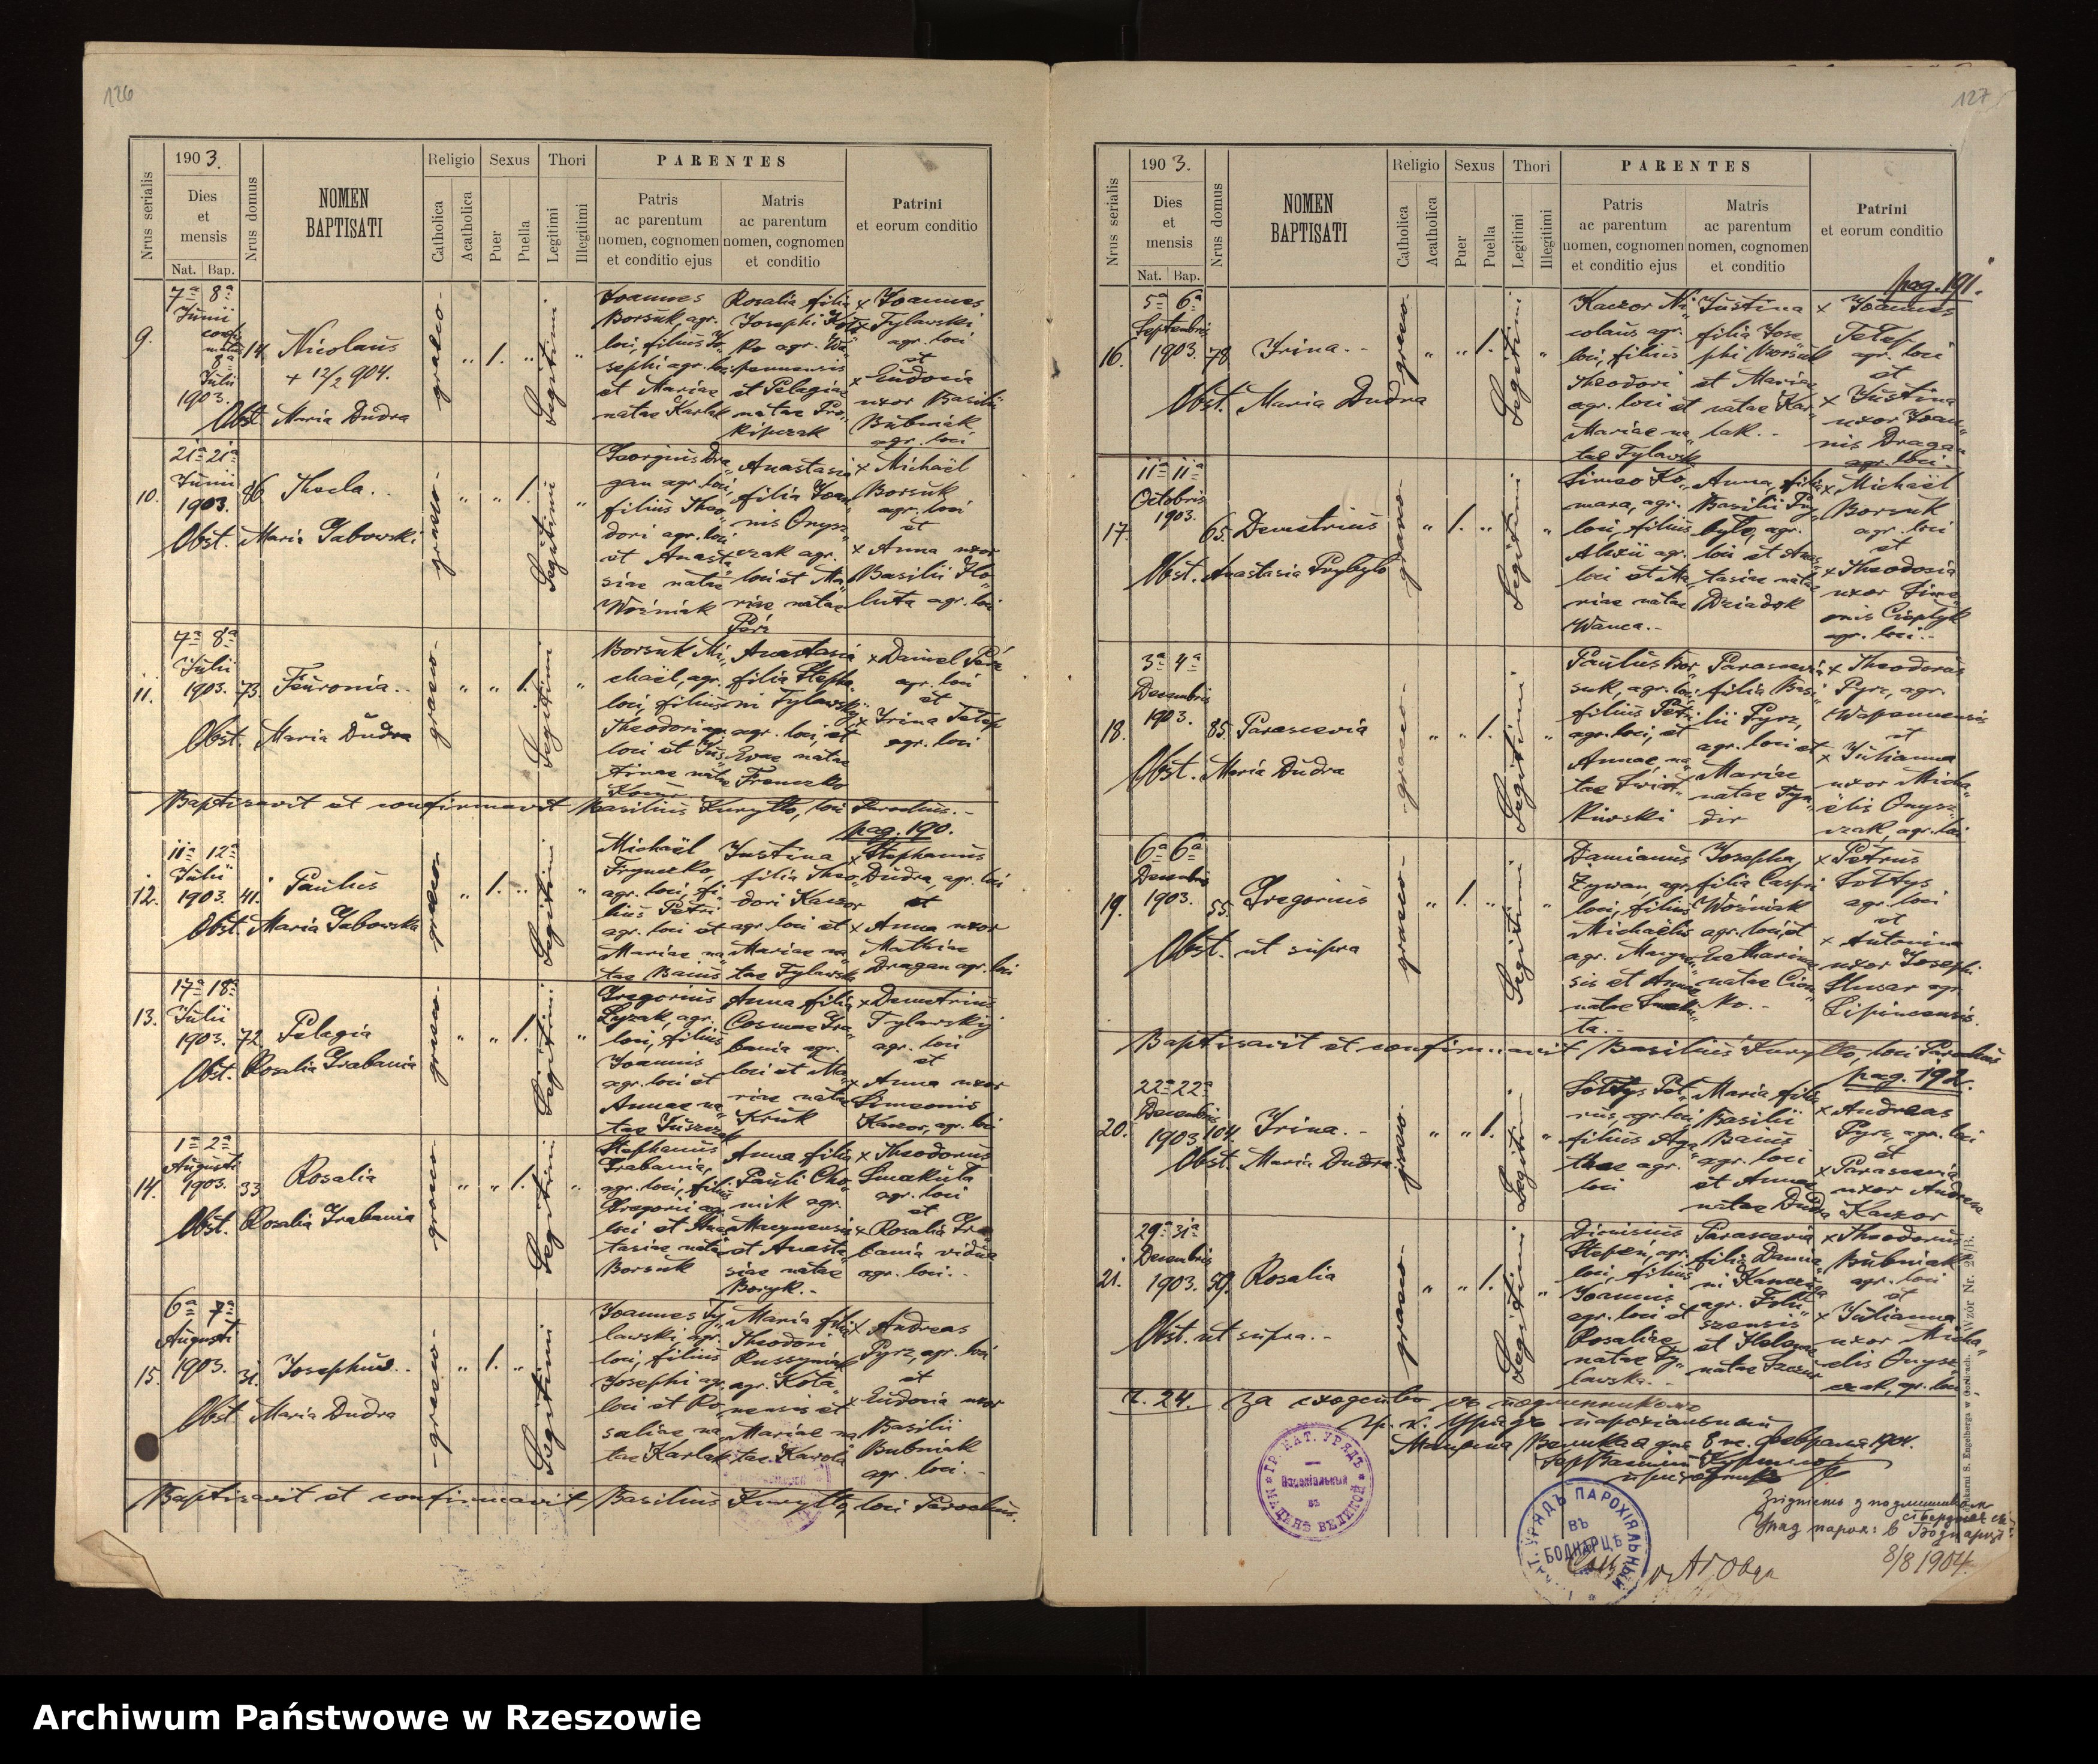 126
1903.
Nrus serialis
Dies
et
mensis
Nat. Bap.
Nrus domus
NOMEN
BAPTISATI
Religio
Catholica
Acatholica
Sexus
Puer
Puella
Thori
Legitimi
Illegitimi
PARENTES
Patris
ac parentum
nomen, cognomen
et conditio ejus
Matris
ac parentum
nomen, cognomen
et conditio
Patrini
et eorum conditio
9.
7ª 8ª
Junii
8ª
Julii
1903.
14.
Nicolaus
+ 12/2 904.
Obst. Maria Dudra
graeco-
" 1. " Legitimi "
Joannes
Borsuk, agr.
loci, filius Jo„
sephi agr. loci
et Mariae
natae Karlak
Rosalia filia
Josephi Kot„
ko agr. Wa„
pennensis
et Pelagiae
natae Pro„
kipczak
x Joannes
Tylawski
agr. loci
et
x Eudocia
uxor Basilii
Bubniak
agr. loci
10.
21ª 21ª
Junii
1903.
86
Thecla.
Obst. Maria Gabowski
graeco-
" " 1. Legitimi "
Georgius Dra„
gan agr. loci,
filius Theo„
dori agr. loci
et Anasta„
siae natae
Woźniak
Anastasia
filia Joan„
nis Onysz„
czak agr.
loci et Ma„
riae natae
Pyrz
x Michaël
Borsuk
agr. loci
et
x Anna uxor
Basilii Ho„
luta agr. loci
11.
7ª 8ª
Julii
1903.
73.
Feuronia.
Obst. Maria Dudra
graeco-
" " 1. Legitimi "
Borsuk Mi„
chaël, agr.
loci, filius
Theodori agr.
loci et Jus„
tinae natae
Anastasia
filia Stepha„
ni Tylawski
agr. loci, et
Evae natae
Frenczko
x Daniel Pyrz
agr. loci
et
x Irina Telep
agr. loci
Baptisavit et confirmavit Basilius Kuryłło, loci Parochus.-
pag. 190.
12.
11ª 12ª
Julii
1903.
41.
Paulus
Obst. Maria Gabowska
graeco-
" 1. " Legitimi "
Michaël
Fryneczko,
agr. loci, fi„
lius Petri
agr. loci et
Mariae na„
tae Banius
Justina
filia Theo„
dori Kaczor
agr. loci et
Mariae na„
tae Tylawska
x Stephanus
Dudra, agr. loci
et
x Anna uxor
Mathiae
Dragan agr. loci
13.
17ª 18ª
Julii
1903.
72
Pelagia
Obst. Rosalia Grabania
graeco-
" " 1. Legitimi "
Gregorius
Łyzak, agr.
loci, filius
Joannis
agr. loci et
Annae na„
tae Juszczak
Anna filia
Cosmae Gra„
bania agr.
loci et Ma„
riae natae
Kruk
x Demetrius
Tylawskij
agr. loci
et
x Anna uxor
Simeonis
Kaczor, agr. loci
14.
1ª 2ª
Augusti
1903.
33
Rosalia
Obst. Rosalia Grabania
graeco-
" " 1. Legitimi "
Stephanus
Grabania,
agr. loci, filius
Gregorii agr.
loci et Anas„
tasiae natae
Borsuk
Anna filia
Pauli Cho„
mik agr.
Macynensis
et Anasta„
siae natae
Boryk.-
x Theodorus
Smakuta
agr. loci
et
x Rosalia Gra„
bania vidua
agr. loci.-
15.
6ª 7ª
Augusti
1903.
31.
Josephus.
Obst. Maria Dudra
-graeco-
" 1. " Legitimi
Joannes Ty„
lawski, agr.
loci, filius
Josephi agr.
loci et Ro„
saliae na„
tae Karlak
Maria filia
Theodori
Russyniak
agr. Kota„
nensis et
Mariae na„
tae Karola
x Andreas
Pyrz, agr. loci
et
x Eudoxia uxor
Basilii
Bubniak
agr. loci.-
Baptisavit et confirmavit Basilius Kuryłło, loci Parochus.
127
1903.
Nrus serialis
Dies
et
mensis
Nat. Bap.
Nrus domus
NOMEN
BAPTISATI
Religio
Catholica
Acatholica
Sexus
Puer
Puella
Thori
Legitimi
Illegitimi
PARENTES
Patris
ac parentum
nomen, cognomen
et conditio ejus
Matris
ac parentum
nomen, cognomen
et conditio
Patrini
et eorum conditio
pag. 191.
16.
5ª 6ª
Septembris
1903.
78
Irina.-
Obst. Maria Dudra
graeco-
" " 1. Legitimi "
Kaczor Ni„
colaus agr.
loci, filius
Theodori
agr. loci et
Mariae na„
tae Tylawsk
Justina
filia Jose„
phi Borsuk
et Mariae
natae Kar„
lak.-
x Joannes
Telep
agr. loci
et
x Justina
uxor Joan„
nis Draga
agr. loci.-
17.
11ª 11ª
Octobris
1903.
65.
Demetrius
Obst. Anastasia Prybyło
graeco-
" 1. " Legitimi "
Simeo Ko„
mara, agr.
loci, filius
Alexii agr.
loci et Ma„
riae natae
Wanca.-
Anna, filia
Basilii Pry„
było, agr.
loci et Anas„
tasiae natae
Dziadyk
x Michaël
Borsuk
agr. loci
et
x Theodosia
uxor Sime„
onis Cioplyk
agr. loci.-
18.
3ª 4ª
Decembris
1903.
85.
Parascevia
Obst. Maria Dudra
-graeco-
" " 1. Legitimi "
Paulus Bor„
suk, agr. loci
filius Petri
agr. loci, et
Annae na„
tae Świąt„
kiwski
Parascevia
filia Basi„
lii Pyrz,
agr. loci et
Mariae
natae Fyn„
dir
x Theodorus
Pyrz, agr.
Wapennensis
et
x Julianna
uxor Micha„
ëlis Onysz„
czak, agr. loci
19.
6ª 6ª
Decembris
1903.
55.
Gregorius
Obst. ut supra
graeco-
" 1. " Legitimi "
Damianus
Zywan, agr.
loci, filius
Michaëlis
agr. Macynen„
sis et Annae
natae Smaku„
ta.-
Josepha,
filia Caspri
Woźniak
agr. loci, et
Catharinae
natae Cion„
ko.-
x Petrus
Sołtys
agr. loci
et
x Antonina
uxor Josephi
Slusar agr.
Lipincensis.
Baptisavit et confirmavit Basilius Kuryłło, loci Parochus
pag. 192.
20.
22ª 22ª
Decembris
1903.
104.
Irina.-
Obst. Maria Dudra
graeco-
" " 1. Legitimi "
Sołtys Pet„
rus, agr. loci,
filius Aga„
thae agr.
loci
Maria filia
Basilii
Banis
agr. loci
et Annae
natae Dudra
x Andreas
Pyrz, agr. loci
et
x Parascevia
uxor Andreae
Kaczor
21.
29ª 31ª
Decembris
1903.
59.
Rosalia
Obst. ut supra.-
graeco-
" " 1. Legitimi "
Dionisius
Stefen, agr.
loci, filius
Joannis
agr. loci et
Rosaliae
natae Ty„
lawska.-
Parascevia
filia Damia„
ni Kanczuga
agr. Folu„
szensis
et Helenae
x Theodorus
Bubniak
agr. loci
et
x Julianna
uxor Micha„
elis Onysz„
czak, agr. loci
Ч. 24. За сходство съ подлинникомъ
Гр. к. Урядъ парохіальный
Мацина Велика дня 8 н. Февраля 1904.
ГР. КАТ. УРЯДЪ
Парохіальный
въ
МАЦИНѢ ВЕЛИКОЙ
КАТ. УРЯДЪ ПАРОХІЯЛЬНЫЙ
ВЪ
БОДНАРЦѢ
Згідність з подлинником
стверджає ся
Уряд парох: в Боднарці
8/8 1904.
Wzór Nr. 29/B.
drukarni S. Engelberga w Gorlicach.
Archiwum Państwowe w Rzeszowie